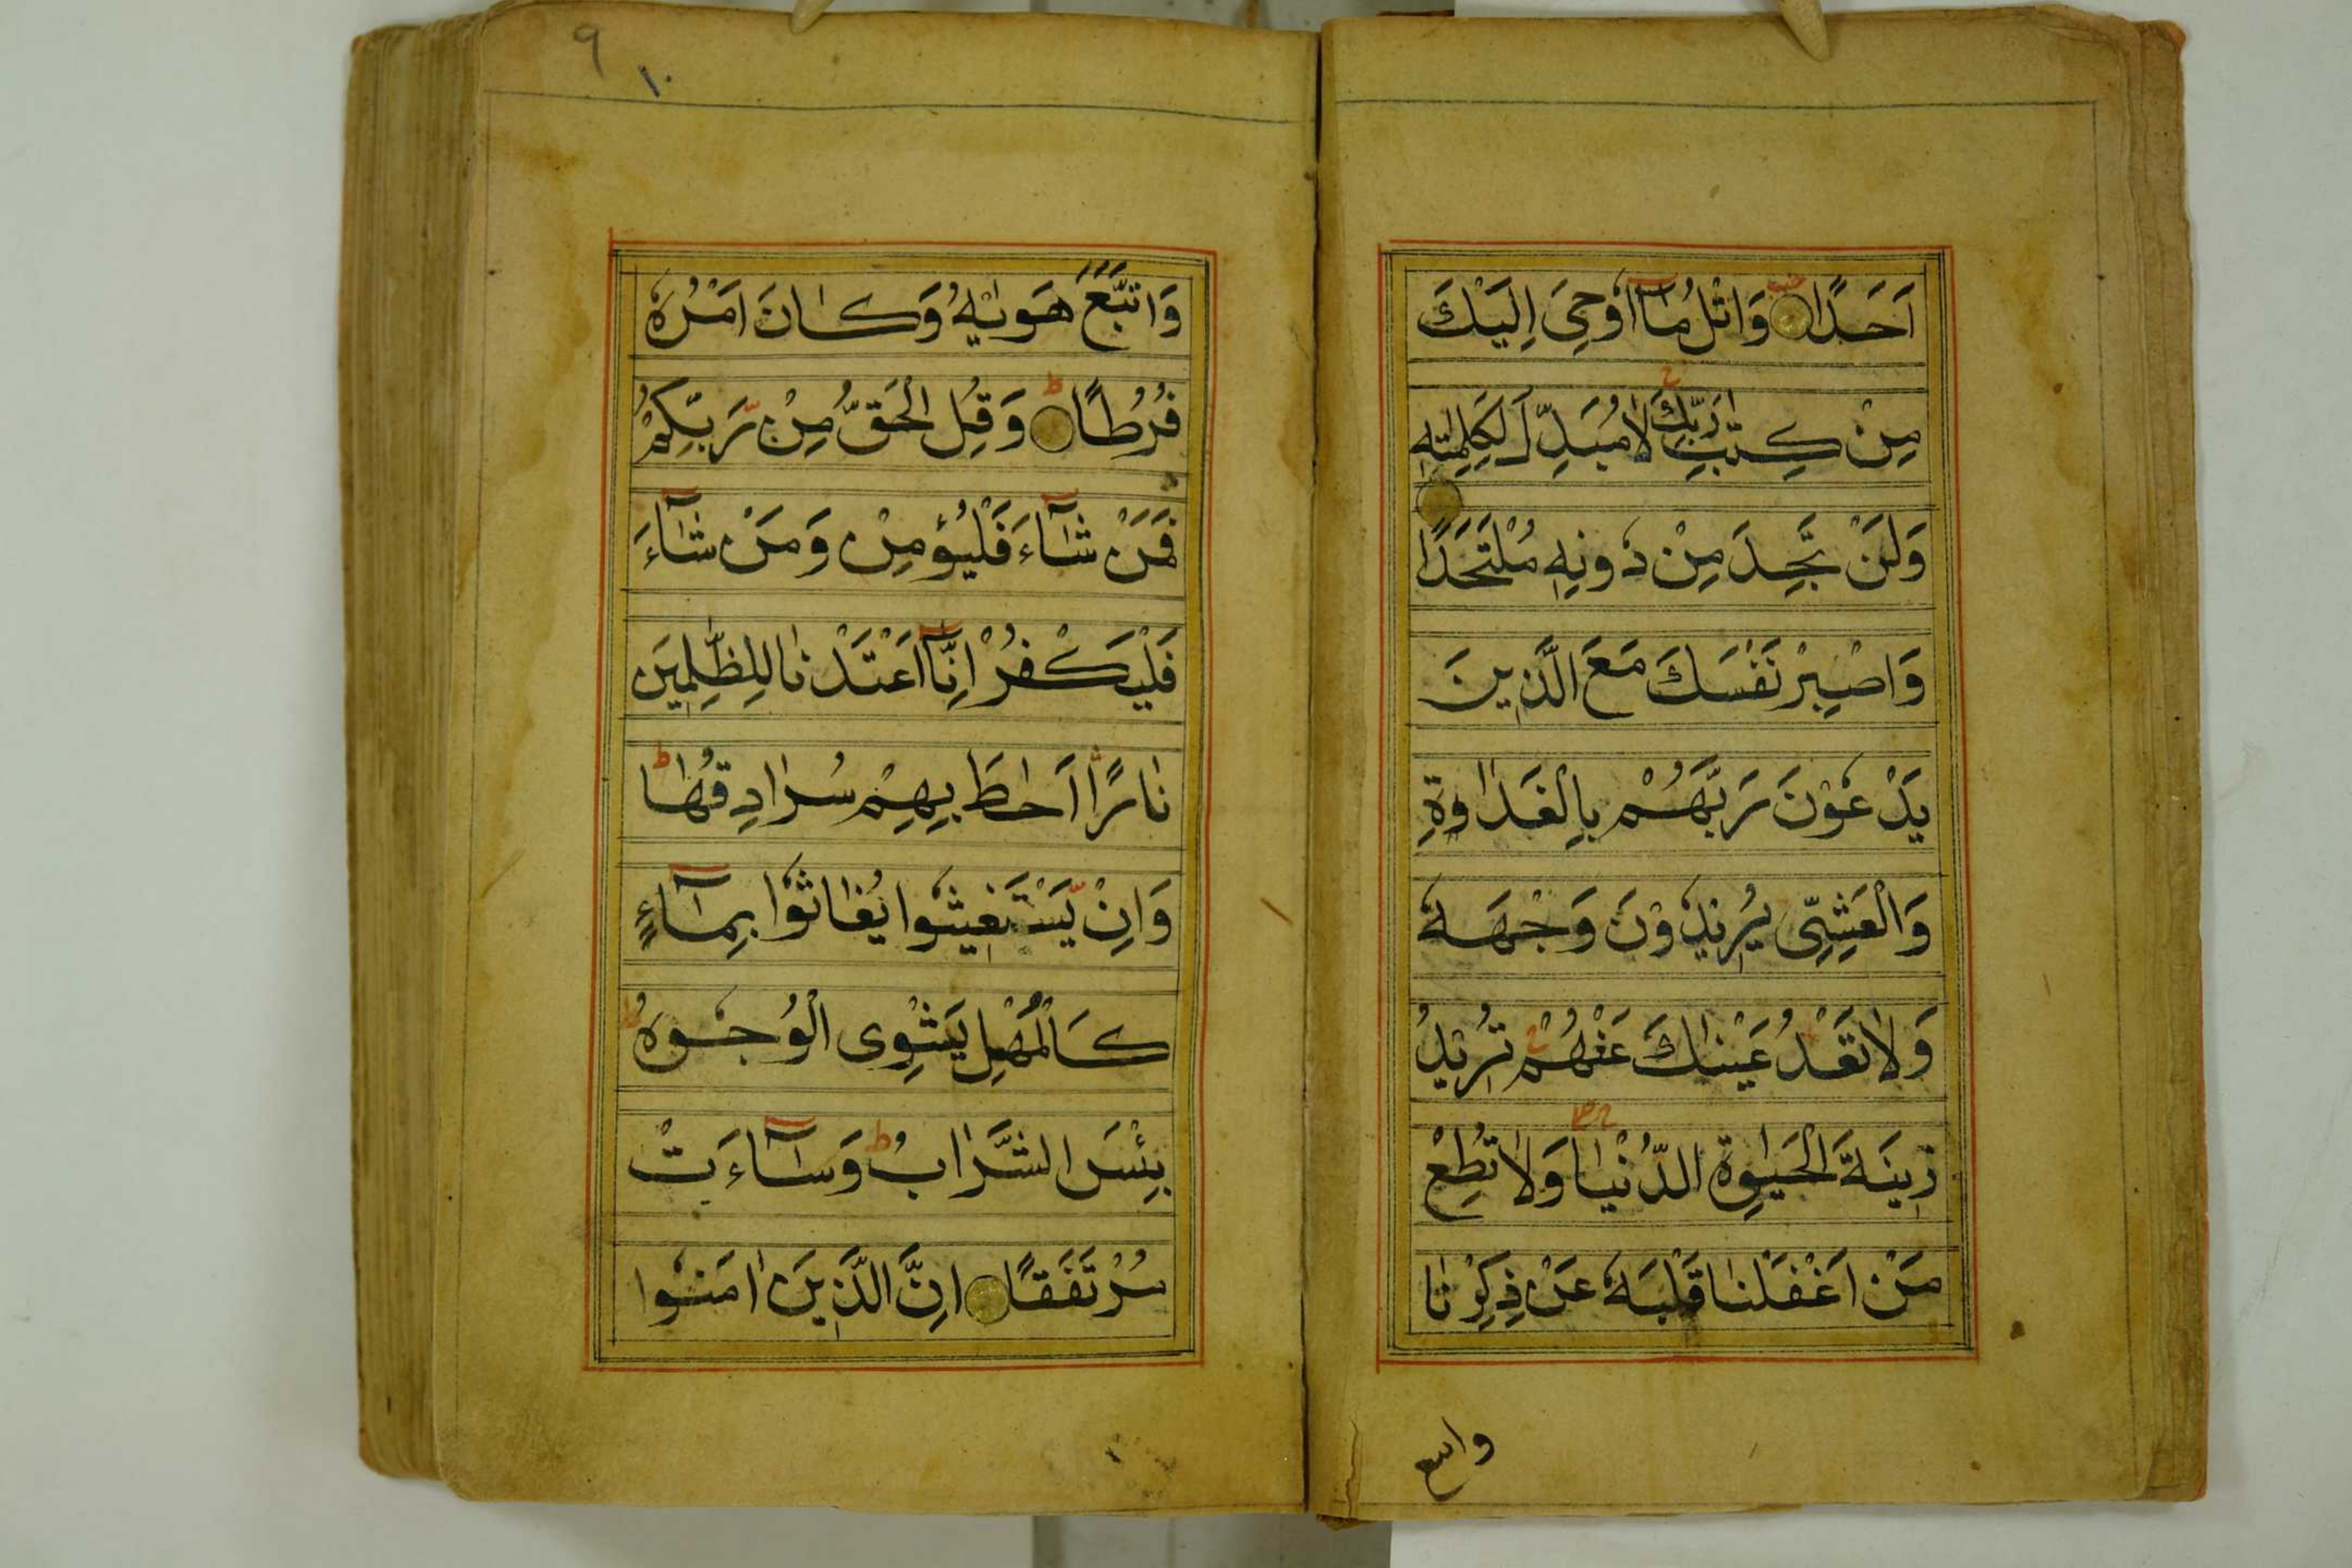 اَحَدًا وَاتْلُ مَآ اُوحِىَ اِلَيْكَ
مِنْ كِتٰبِ رَبِّكَ لَا مُبَدِّلَ لِكَلِمٰتِهٖ
وَلَنْ تَجِدَ مِنْ دُونِهٖ مُلْتَحَدًا
وَاصْبِرْ نَفْسَكَ مَعَ الَّذِينَ
يَدْعُوْنَ رَبَّهُمْ بِالْغَدٰوةِ
وَالْعَشِىِّ يُرِيْدُوْنَ وَجْهَهٗ
وَلَا تَعْدُ عَيْنٰاكَ عَنْهُمْ تُرِيْدُ
زِينَةَ الْحَيٰوةِ الدُّنْيٰا وَلَا تُطِعْ
مَنْ اَغْفَلْنٰا قَلْبَهٗ عَنْ ذِكْرِنٰا
واتبع
٩
١٠
وَاتَّبَعَ هَوٰيهُ وَكٰانَ اَمْرُهٗ
فُرُطًا وَقُلِ الْحَقُّ مِنْ رَّبِّكُمْ
فَمَنْ شٰآءَ فَلْيُؤْمِنْ وَمَنْ شٰآءَ
فَلْيَكْفُرْ اِنَّآ اَعْتَدْنٰا لِلظّٰلِمِيَن
نٰارًا اَحٰاطَ بِهِمْ سُرٰادِقُهٰا
وَاِنْ يَّسْتَغِيثُوا يُغٰاثُوْا بِمٰآءٍ
كَالْمُهْلِ يَشْوِى الْوُجُوهَ
بِئْسَ الشَّرٰابُ وَسٰآءَتْ
مُرْتَفَقًا اِنَّ الَّذِينَ اٰمَنُوا